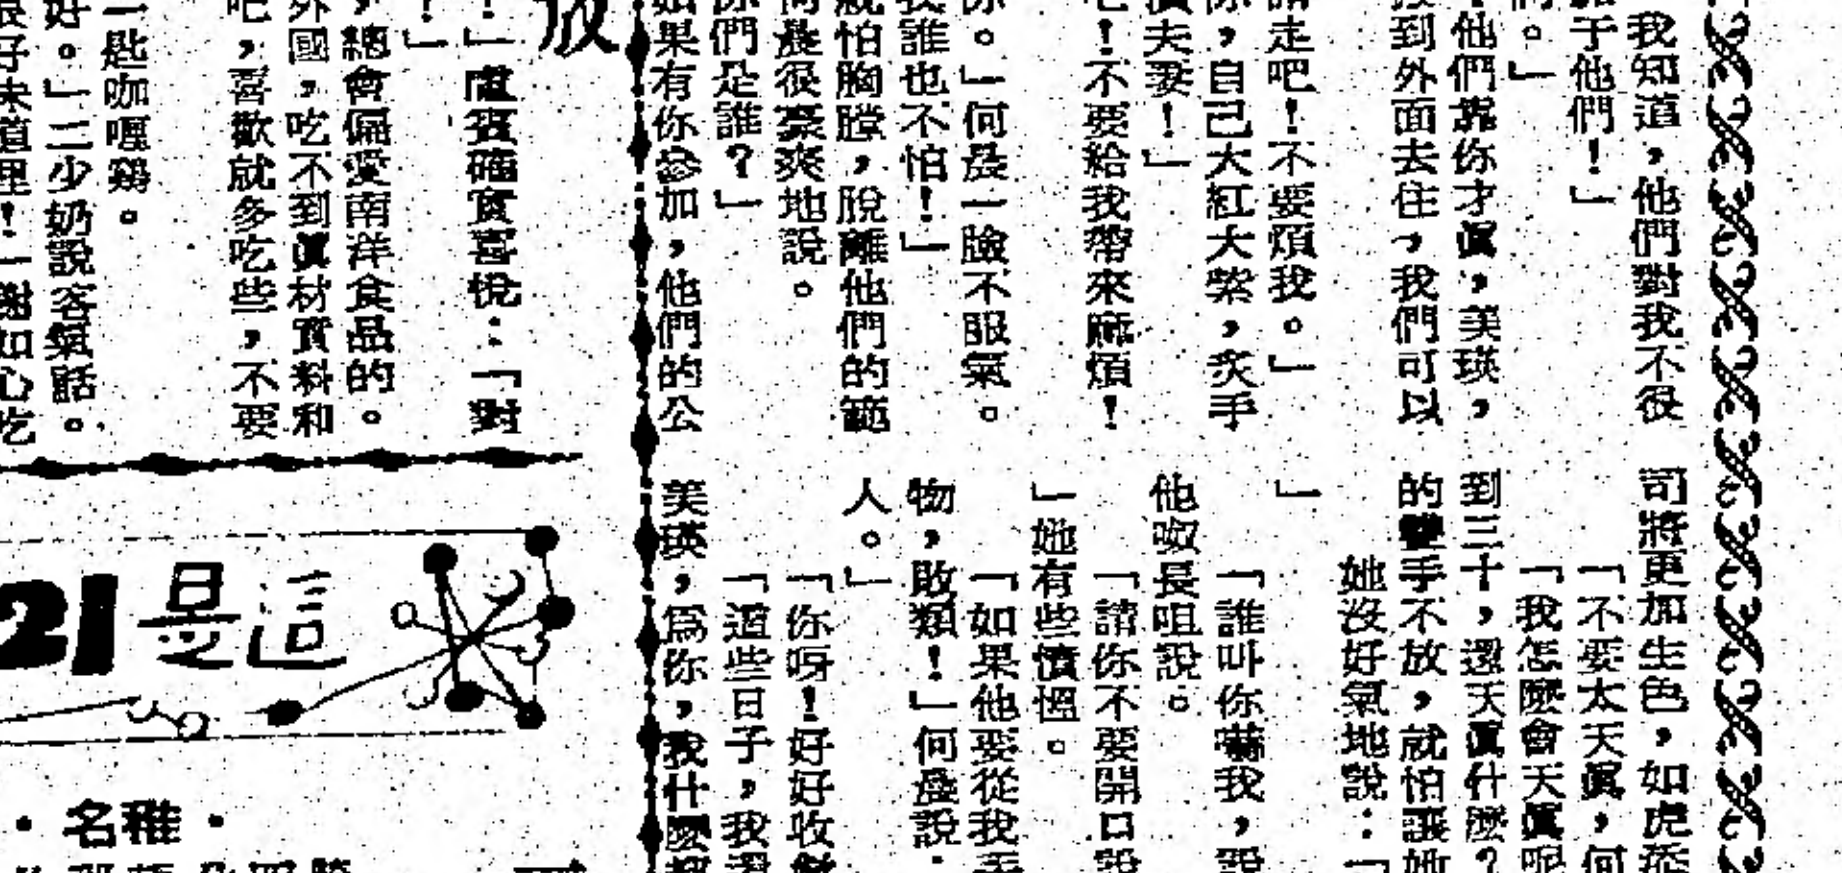 我知道，他們對我不很
于他們！」
們。」
他們靠你才眞，美瑛，
到外面去住，我們可以
走吧！不要煩我。」
你，自己大紅大紫，炙手
夫妻！」
吧！不要給我帶來麻煩！
你。」何晟一臉不服氣。
我誰也不怕！」
就怕胸膛，脫離他們的範
何晟很豪爽地說。
你們是誰？」
如果有你參加，他們的公
司將更加生色，如虎添
「不要太天眞，何
「我怎麼會天眞呢
到三十，還天眞什麼？
的雙手不放，就怕讓她
她沒好氣地說：「
」
「誰叫你嚇我，說
他咬長咀說。
「請你不要開口說
」她有些憤慍。
「如果他要從我手
物，敗類！」何晟說：
人。」
「你呀！好好收
「這些日子，我還
美瑛，爲你，我什麼都
放
！」盧孩確實喜悅：「對
！」
，總會偏愛南洋食品的。
外國，吃不到眞材實料和
吧，喜歡就多吃些，不要
一匙咖喱鷄。
好。」二少奶說客氣話。
很好味道哩！」謝如心吃
這是21
·雅名·